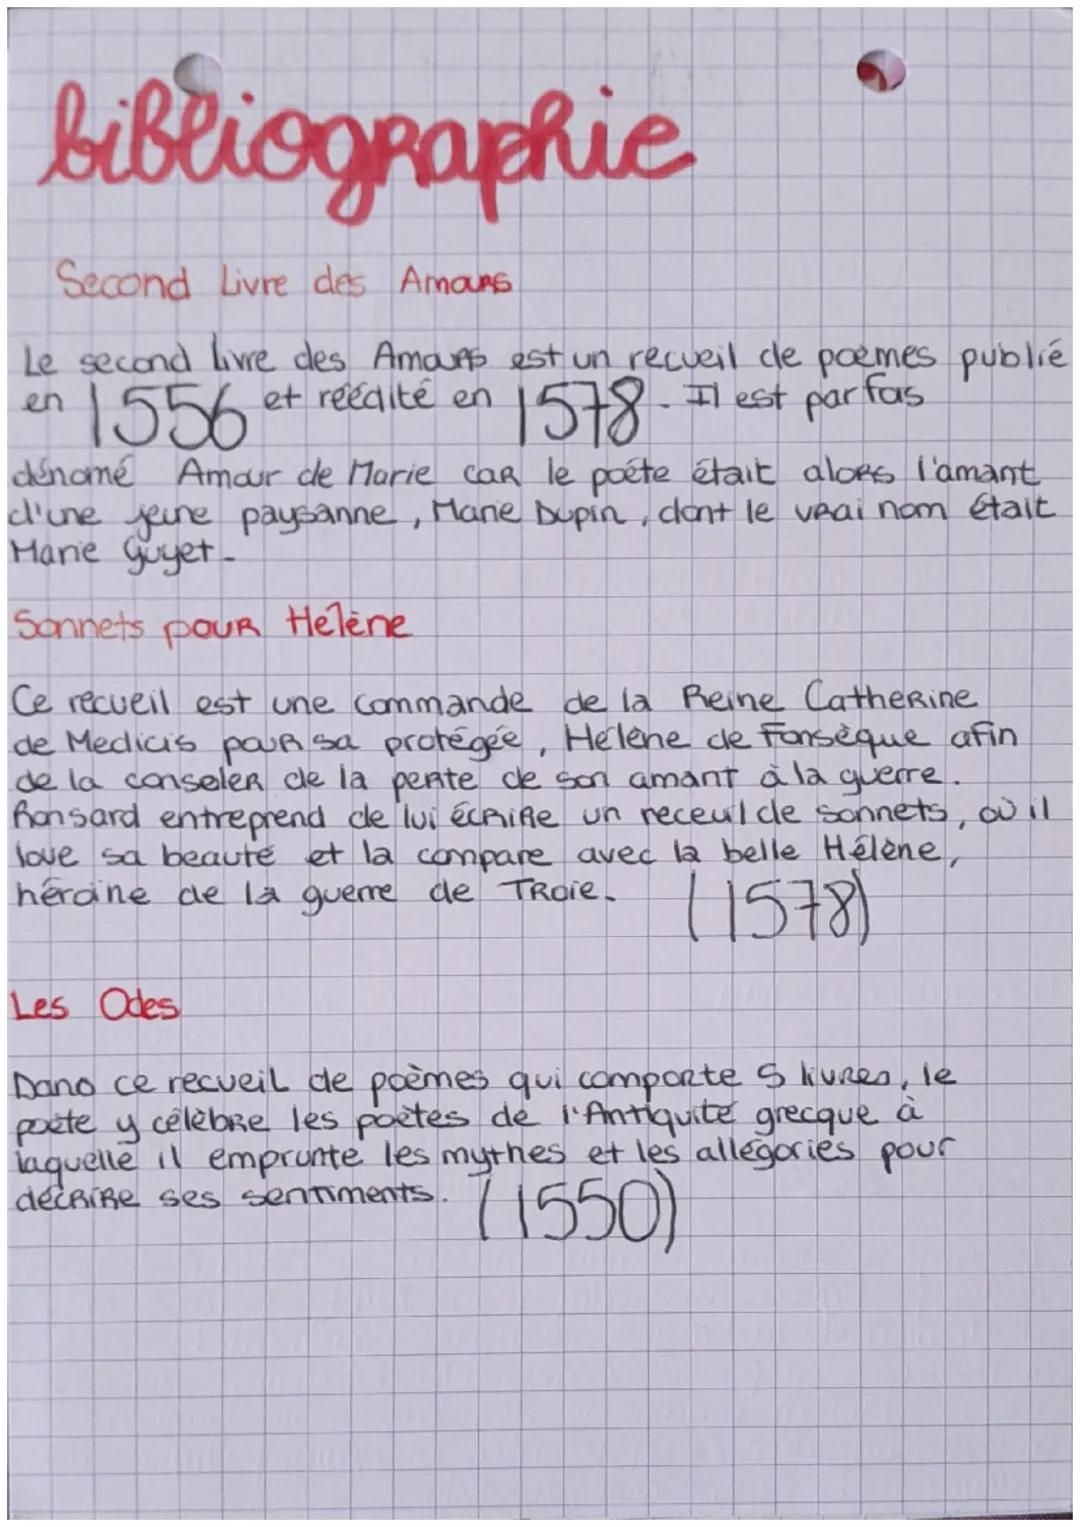 bibliographie
Second Livre des Amours
Le second livre des Amours est un recueil de poèmes publié
en 1556 et réédité en 1578. Il est parfois
dénomé Amour de Marie car le poéte était alors l'amant
d'une jeune paysanne, Marie Dupin, dont le vrai nom était
Marie Guyet.
Sonnets pour Hélène
Ce recueil est une commande de la Reine Catherine
de Medicis pour sa protégée, Hélène de Fonsèque afin
de la conseler de la perte de son amant à la guerre.
Ronsard entreprend de lui écrire un receuil de sonnets, où il
loue sa beauté et la compare avec la belle Hélène,
héroïne de la guerre de Troie. (1578)
Les Odes
Dans ce recueil de poèmes qui comporte 5 livres, le
poète y célèbre les poètes de l'Antiquité grecque à
laquelle il emprunte les mythes et les allégories pour
décrire ses sentiments. (1550)